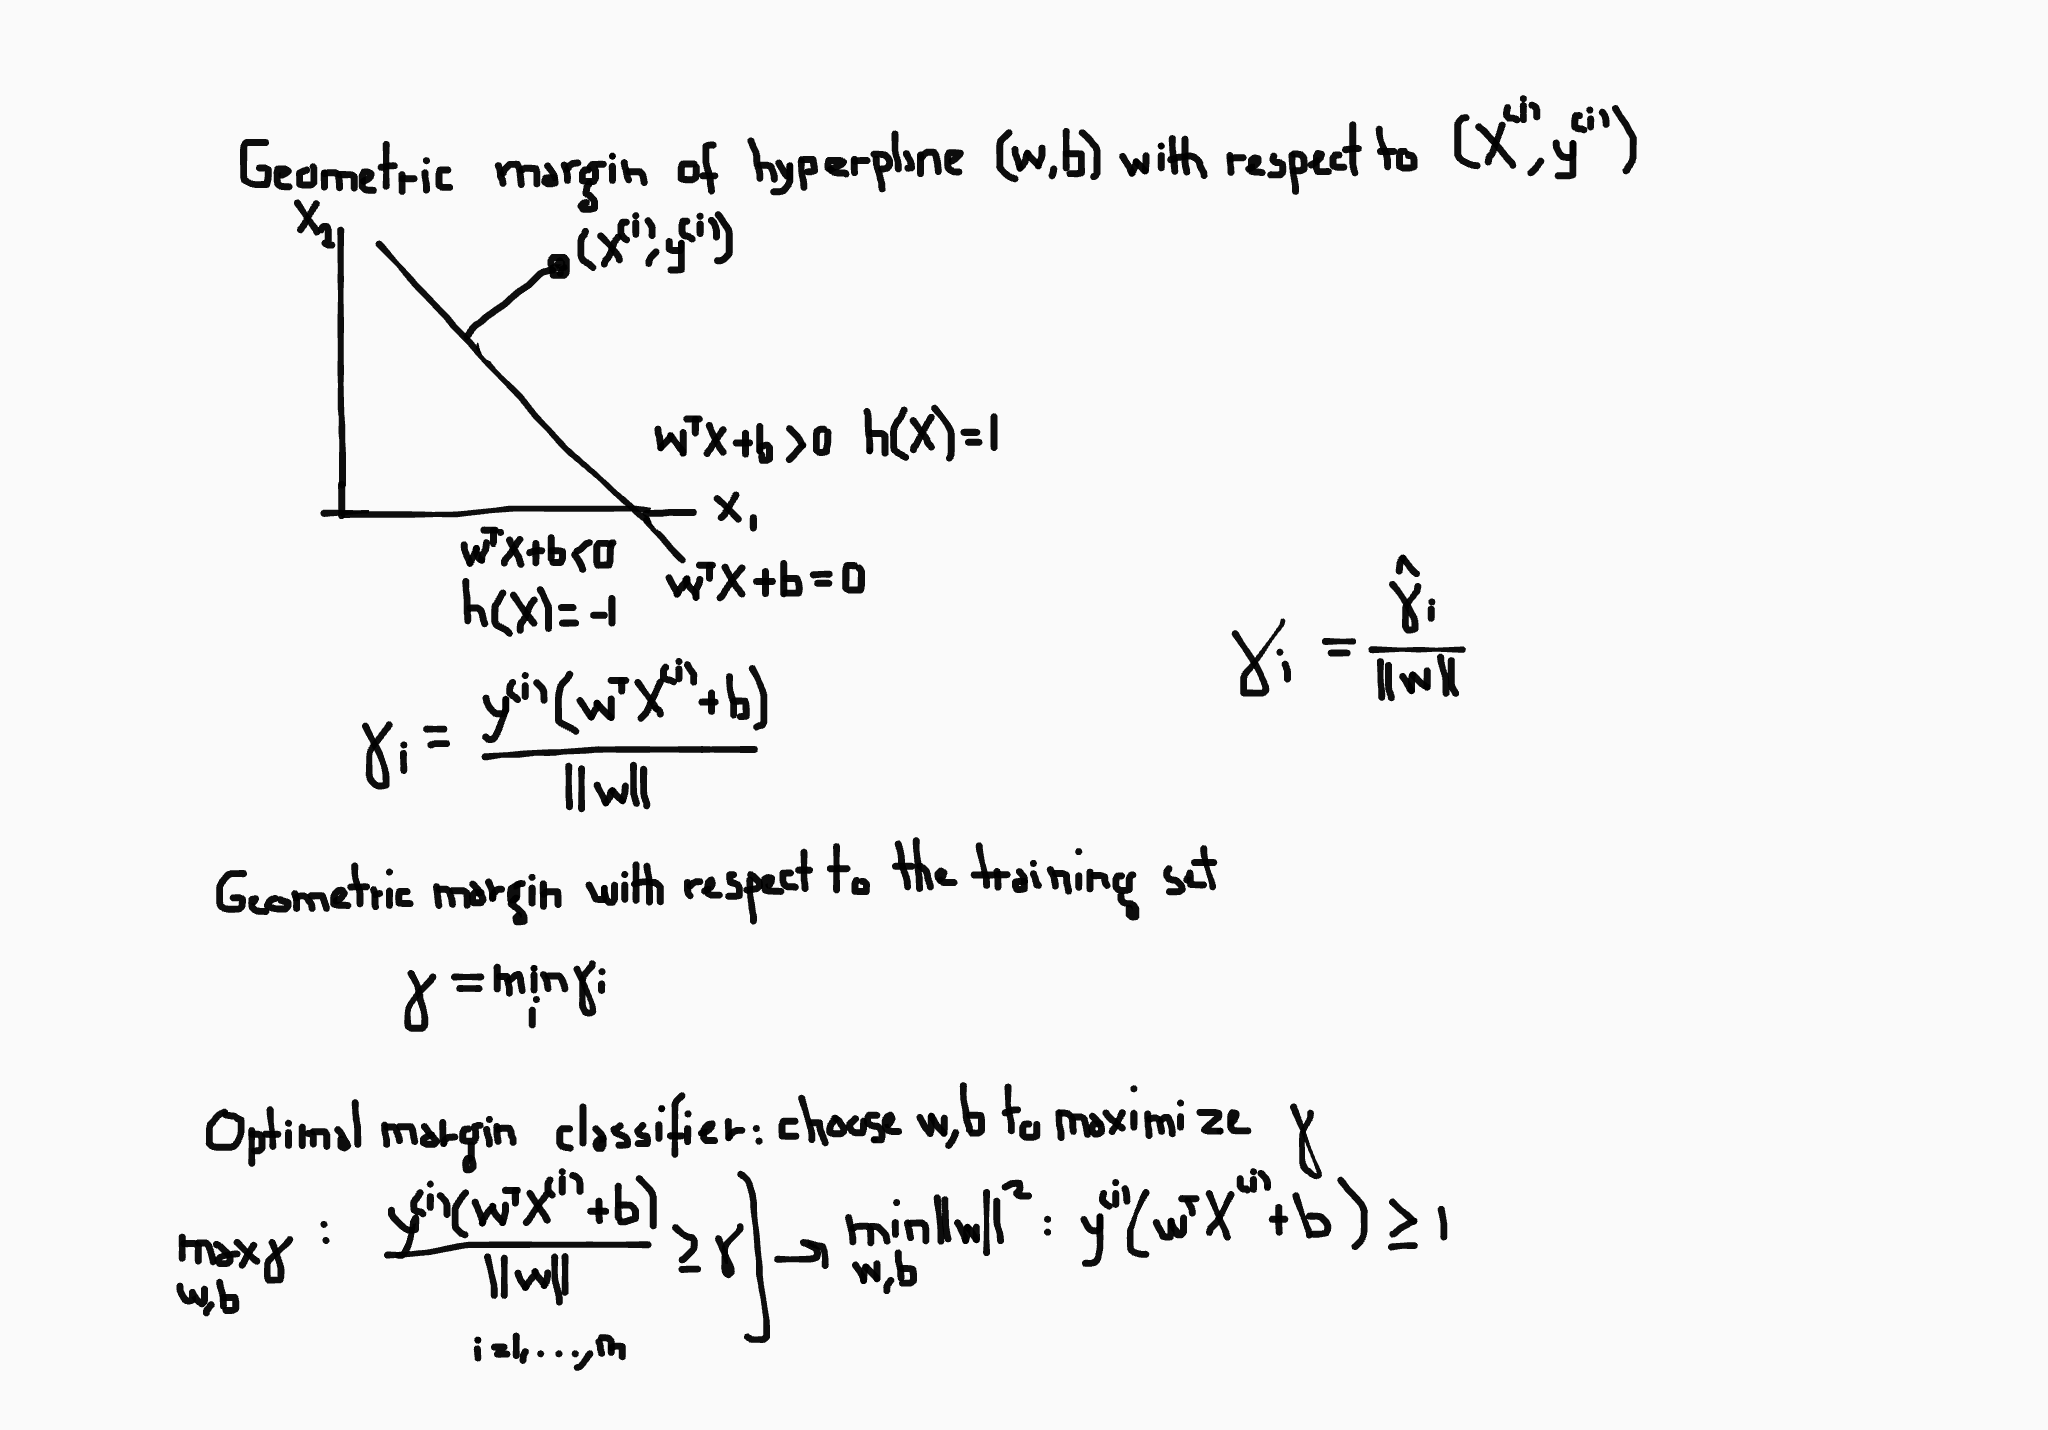 Geometric margin of hyperplane (w,b) with respect to (X⁽ⁱ⁾, y⁽ⁱ⁾)
X₂
(X⁽ⁱ⁾, y⁽ⁱ⁾)
wᵀX+b>0 h(X)=1
X₁
wᵀX+b<0
h(X)=-1
wᵀX+b=0
γᵢ = y⁽ⁱ⁾(wᵀX⁽ⁱ⁾+b) / ||w||
γᵢ = γ̂ᵢ / ||w||
Geometric margin with respect to the training set
γ = min_i γᵢ
Optimal margin classifier: choose w,b to maximize γ
max_{w,b} γ : y⁽ⁱ⁾(wᵀX⁽ⁱ⁾+b) / ||w|| ≥ γ ] → min_{w,b} ||w||² : y⁽ⁱ⁾(wᵀX⁽ⁱ⁾+b) ≥ 1
i=1,...,m